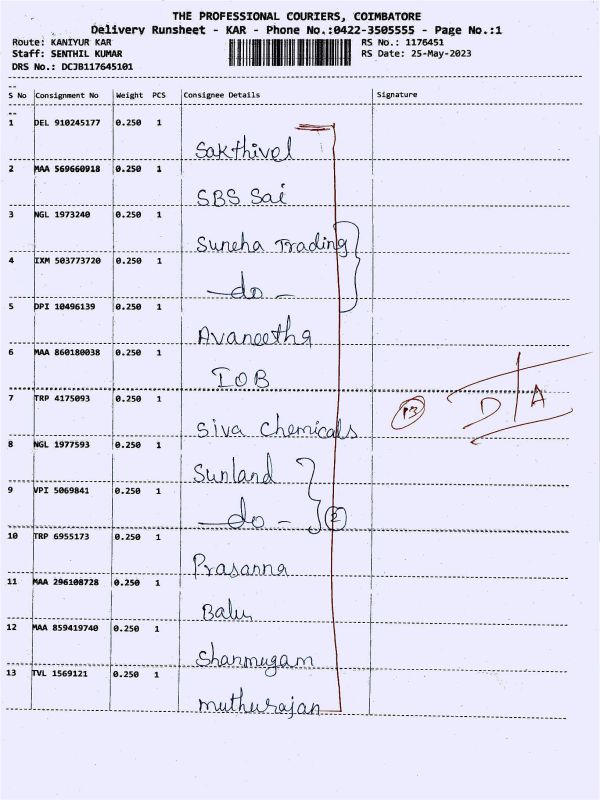 THE PROFESSIONAL COURIERS, COIMBATORE
Delivery Runsheet - KAR - Phone No.:0422-3505555 - Page No.:1
Route: KANIYUR KAR RS No.: 1176451
Staff: SENTHIL KUMAR RS Date: 25-May-2023
DRS No.: DCJB117645101
S No Consignment No Weight PCS Consignee Details Signature
1 DEL 910245177 0.250 1
Sakthivel
2 MAA 569660918 0.250 1
SBS Sai
3 NGL 1973240 0.250 1
Suneha Trading
4 IXM 503773720 0.250 1
-do-
5 DPI 10496139 0.250 1
Avaneetha
6 MAA 860180038 0.250 1
IOB
7 TRP 4175093 0.250 1
13 D/A
Siva Chemicals
8 NGL 1977593 0.250 1
Sunland
9 VPI 5069841 0.250 1
-do- 2
10 TRP 6955173 0.250 1
Prasanna
11 MAA 296108728 0.250 1
Balu
12 MAA 859419740 0.250 1
Shanmugam
13 TVL 1569121 0.250 1
muthurajan